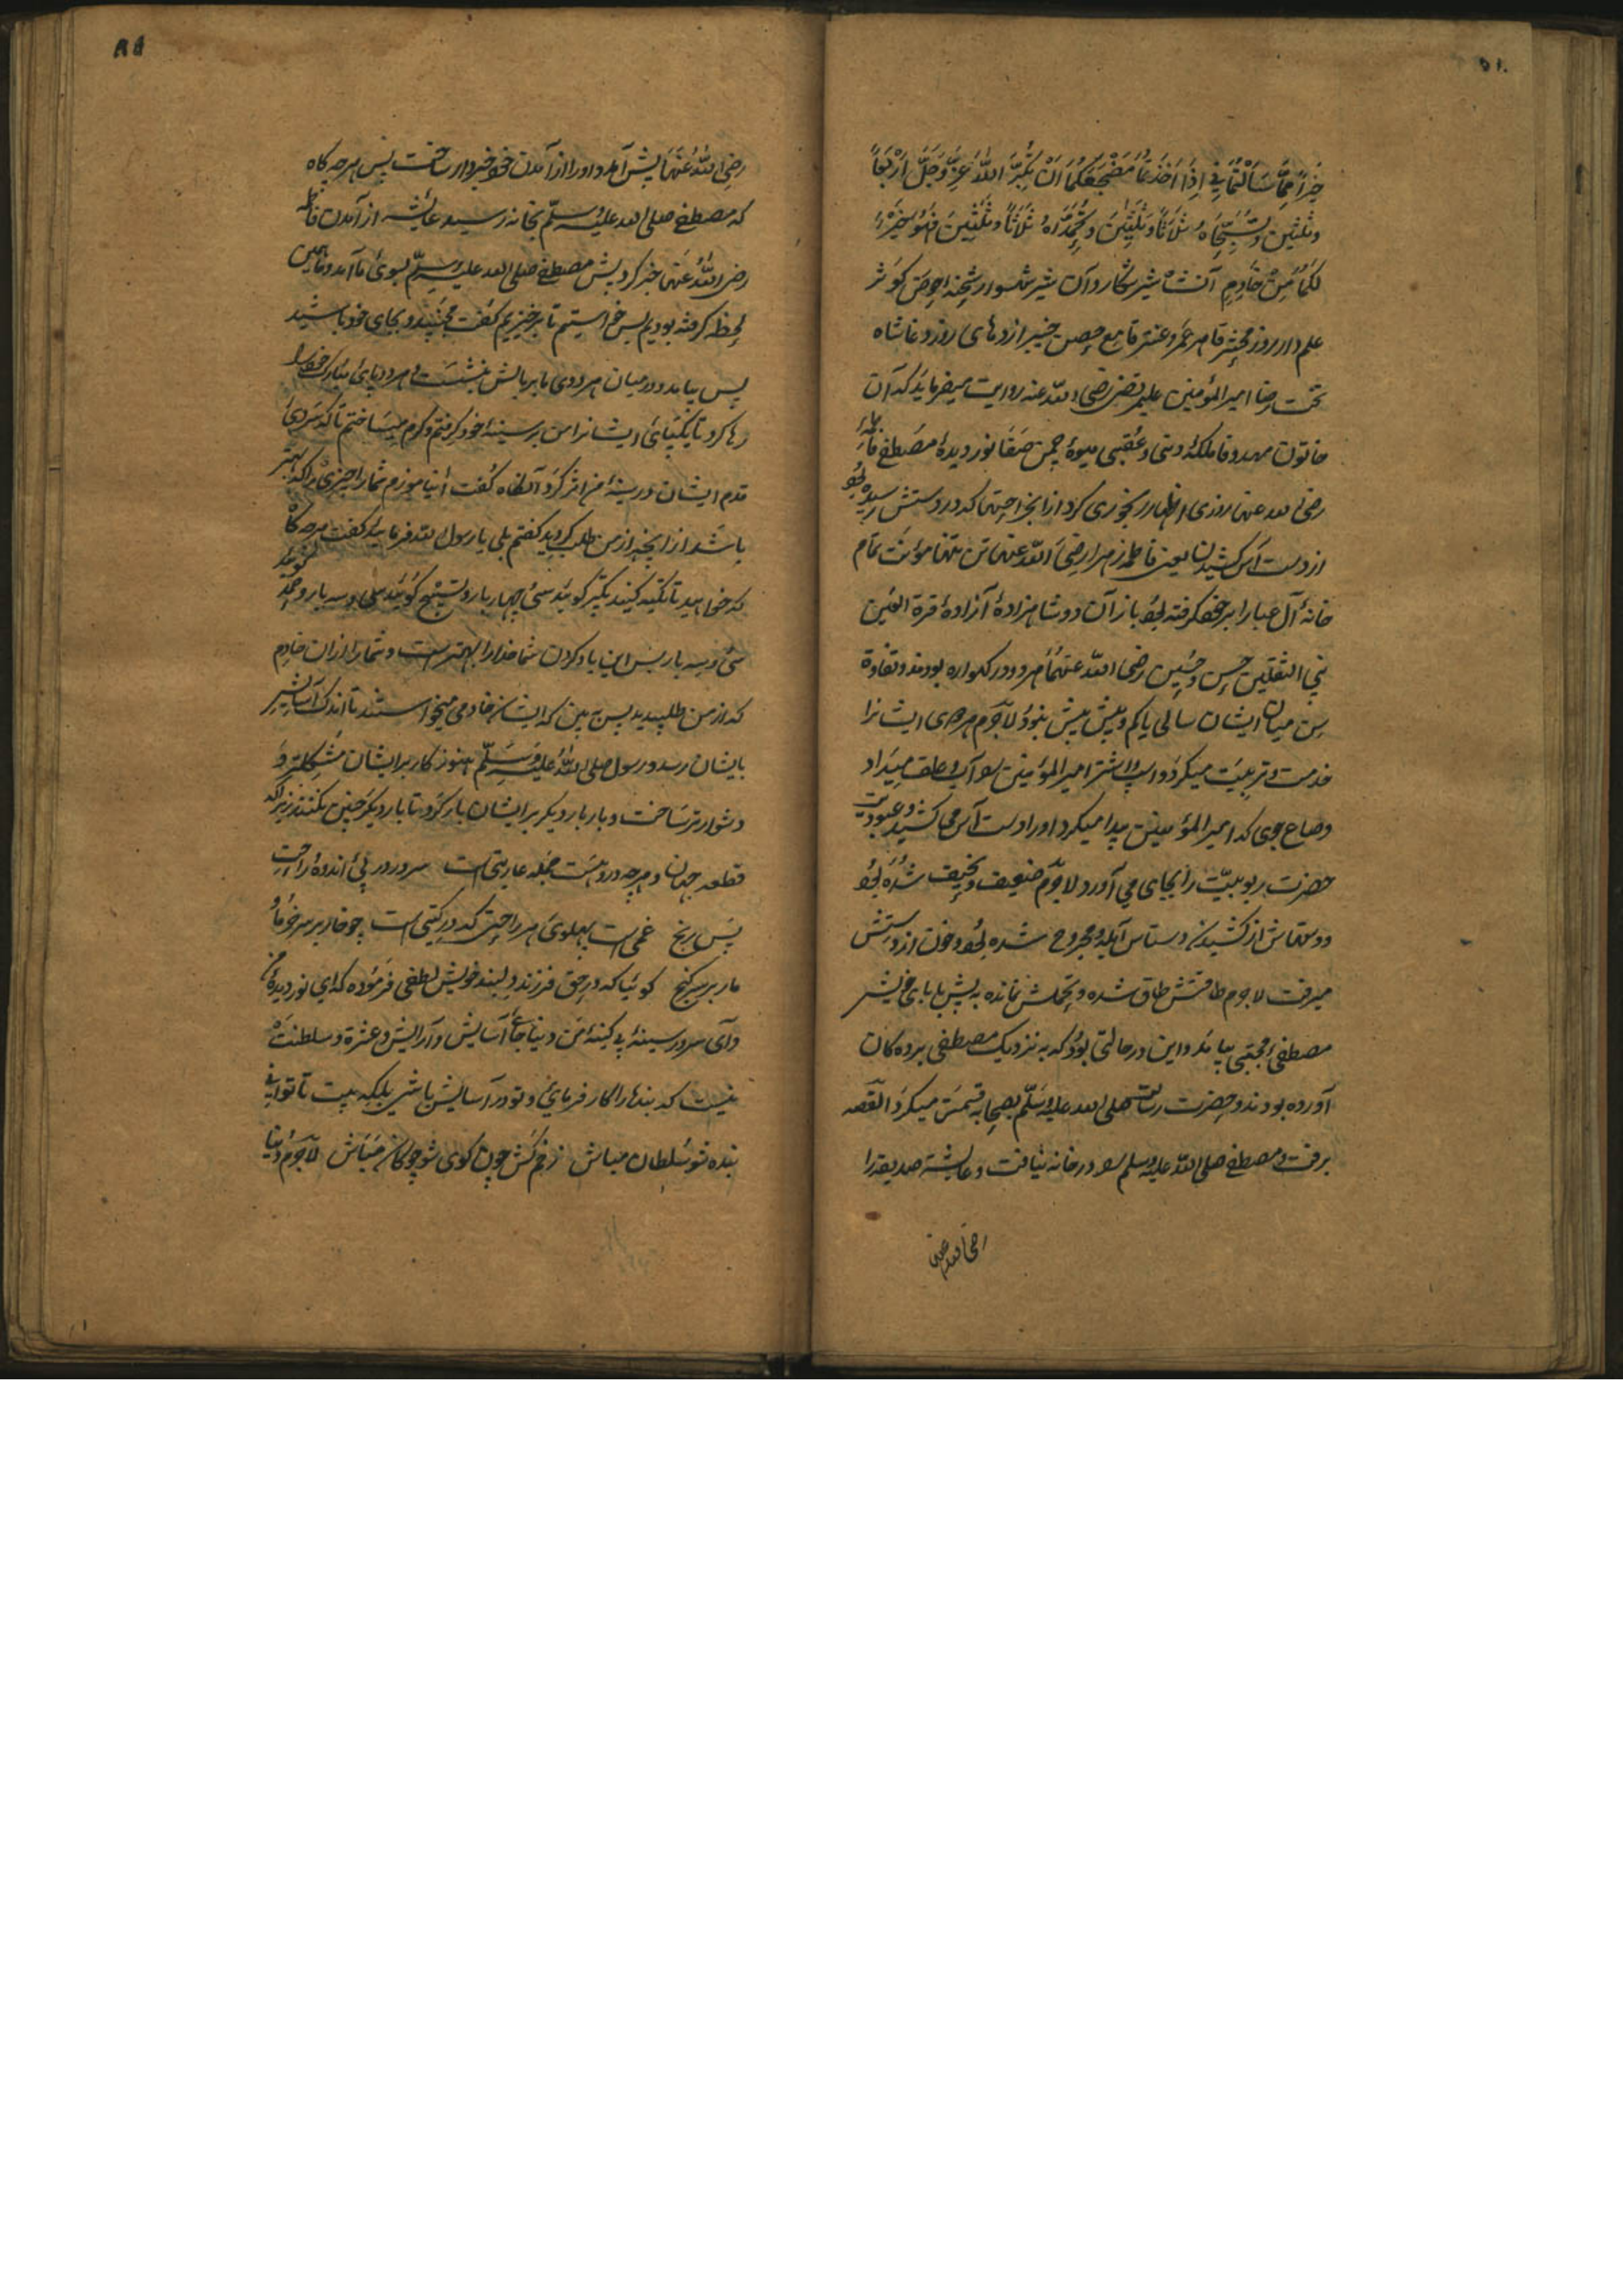 خَيْرًا مِمَّا سَأَلْتُمَا فِي اِذَا اَخَذْتُمَا مَضْجَعَكُمَا اَنْ تُكَبِّرَا اللّٰهَ عَزَّ وَجَلَّ اَرْبَعًا
وثلثين وتُسَبِّحَاهُ ثَلَاثًا وثَلٰثِينَ وتُحَمِّدَاهُ ثَلَاثًا وثَلٰثِينَ فهُوَ خَيْرٌ
لكُمَا مِنْ خَادِمٍ آن شاه شیر شکار و آن شیر شهسوار شحنهٔ حوض کوثر
علم دار روز محشر قاهر عمرو عنتر قامع حصن خیبر اژدهای روز وغا شاه
تخت رضا امیر المؤمنین علی مرتضی رضی الله عنه روایت میفرماید که آن
خاتون مهد وفا ملکهٔ دنی و عقبی میوهٔ چمن صفا نور دیدهٔ مصطفی فاطمه
رضی الله عنها روزی اظهار رنجوری کرد از آن جراحتها که در دستش رسیده بود
از دست آس کشیدن یعنی فاطمه زهرا رضی الله عنها تن تنها مؤنت تمام
خانهٔ آل عبا را بر خود گرفته بود باز آن دو شاهزادهٔ آزادهٔ قرة العین
نبی الثقلین حسن و حسین رضی الله عنهما هر دو در گهواره بودند و تفاوة
سن میان ایشان سالی یا کم و بیش بیش نبود لاجرم هر دوی ایشانرا
خدمت و تربیت میکرد و اسپ و اشتر امیر المؤمنین را آب و علف میداد
و صاع جوی که امیر المؤمنین پیدا میکرد او را دست آس میکشید و عبودیت
حضرت ربوبیّت را بجای می آورد لاجرم ضعیف و نحیف شده بود
و دستهاش از کشیدن دستاس آبله و مجروح شده بود و خون از دستش
میرفت لاجرم طاقتش طاق شده و تحملش نمانده به پیش بابای خویش
مصطفی مجتبی بیامد و این در حالتی بود که به نزدیک مصطفی برده گان
آورده بودند و حضرت رسالت صلی الله علیه وسلم بصحابه قسمت میکرد القصه
برفت و مصطفی صلی الله علیه وسلم را در خانه نیافت و عایشهٔ صدیقه را
رضی الله عنها
رضی الله عنها پیش آمد و او را از آمدن خود خبردار ساخت پس هرچه گاه
که مصطفی صلی الله علیه وسلم بخانه رسید و عایشه از آمدن فاطمه
رضی الله عنها خبر کرد پس مصطفی صلی الله علیه وسلم بسوی ما آمد و ما همین
لحظه گرفته بودیم پس خواستیم تا برخیزیم گفت مجنبید و بجای خود باشید
پس بیامد و در میان هر دوی ما بر بالش بنشست و هر دو پای مبارک خود را
رها کرد تا یکپای ایشانرا من بر سینهٔ خود گرفتم و گرم میساختم تا که سردی
قدم ایشان در سینهٔ من اثر کرد آنگاه گفت أ نیاموزم شما را چیزی را که بهتر
باشد از آنچه از من طلب کردید گفتم بلی یا رسول الله فرمایید گفت هرچه گاه
که خواهید تا تکیه کنید تکبیر گویید سی و چهار بار و تسبیح گویید سی و سه بار و حمد گویید
سی و سه بار پس این یاد کردن شما خدا را بهتر است و شما را از آن خادم
که از من طلبیدید پس ببین که ایشان خادمی میخواستند تا اندک آسایش
بایشان رسد و رسول صلی الله علیه وسلم هنوز کار بر ایشان مشکلتر و
دشوارتر ساخت و بار بار دیگر بر ایشان بار کرد تا بار دیگر چنین نکنند زیرا که
قطعه جهان و هرچه درو هست جمله عاریتی است سرور در پی اندوه و راحت
پس رنج غمی است پهلوی هر راحتی که در گیتی است چو خار بر سر خرما و
مار بر سر گنج گوئیا که در حق فرزند دلبند خویش لطفی فرموده که ای نور دیدهٔ من
و ای سرور سینهٔ بی کینهٔ من دنیا جای آسایش و آرایش و عشرة و سلطنت
نیست که بندها را کار فرمائی و تو در آسایش باشی بلکه بیت تا توانی
بنده شو سلطان مباش زخم کش چون گوی شو چوگان مباش لاجرم دنیا